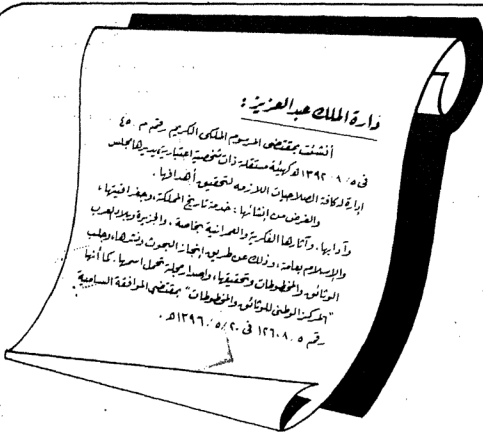 دارة الملك عبد العزيز :
أنشئت بمقتضى المرسوم الملكى الكريم رقم م ٤٥
فى ٥ / ٨ / ١٣٩٢ هـ كهيئة مستقلة ذات شخصية اعتبارية يديرها مجلس
إدارة له كافة الصلاحيات اللازمة لتحقيق أهدافها .
والغرض من إنشائها : خدمة تاريخ المملكة، وجغرافيتها،
وآدابها، وآثارها الفكرية والعمرانية بخاصة، والجزيرة وبلاد العرب
والإسلام بعامة، وذلك عن طريق إنجاز البحوث ونشرها، وجلب
الوثائق والمخطوطات وتحقيقها، وإصدار مجلة تحمل اسمها. كما أنها
"المركز الوطنى للوثائق والمخطوطات" بمقتضى الموافقة السامية
رقم ١٢٦٠٨ / ٥ فى ٢٠ / ٥ / ١٣٩٦ هـ .